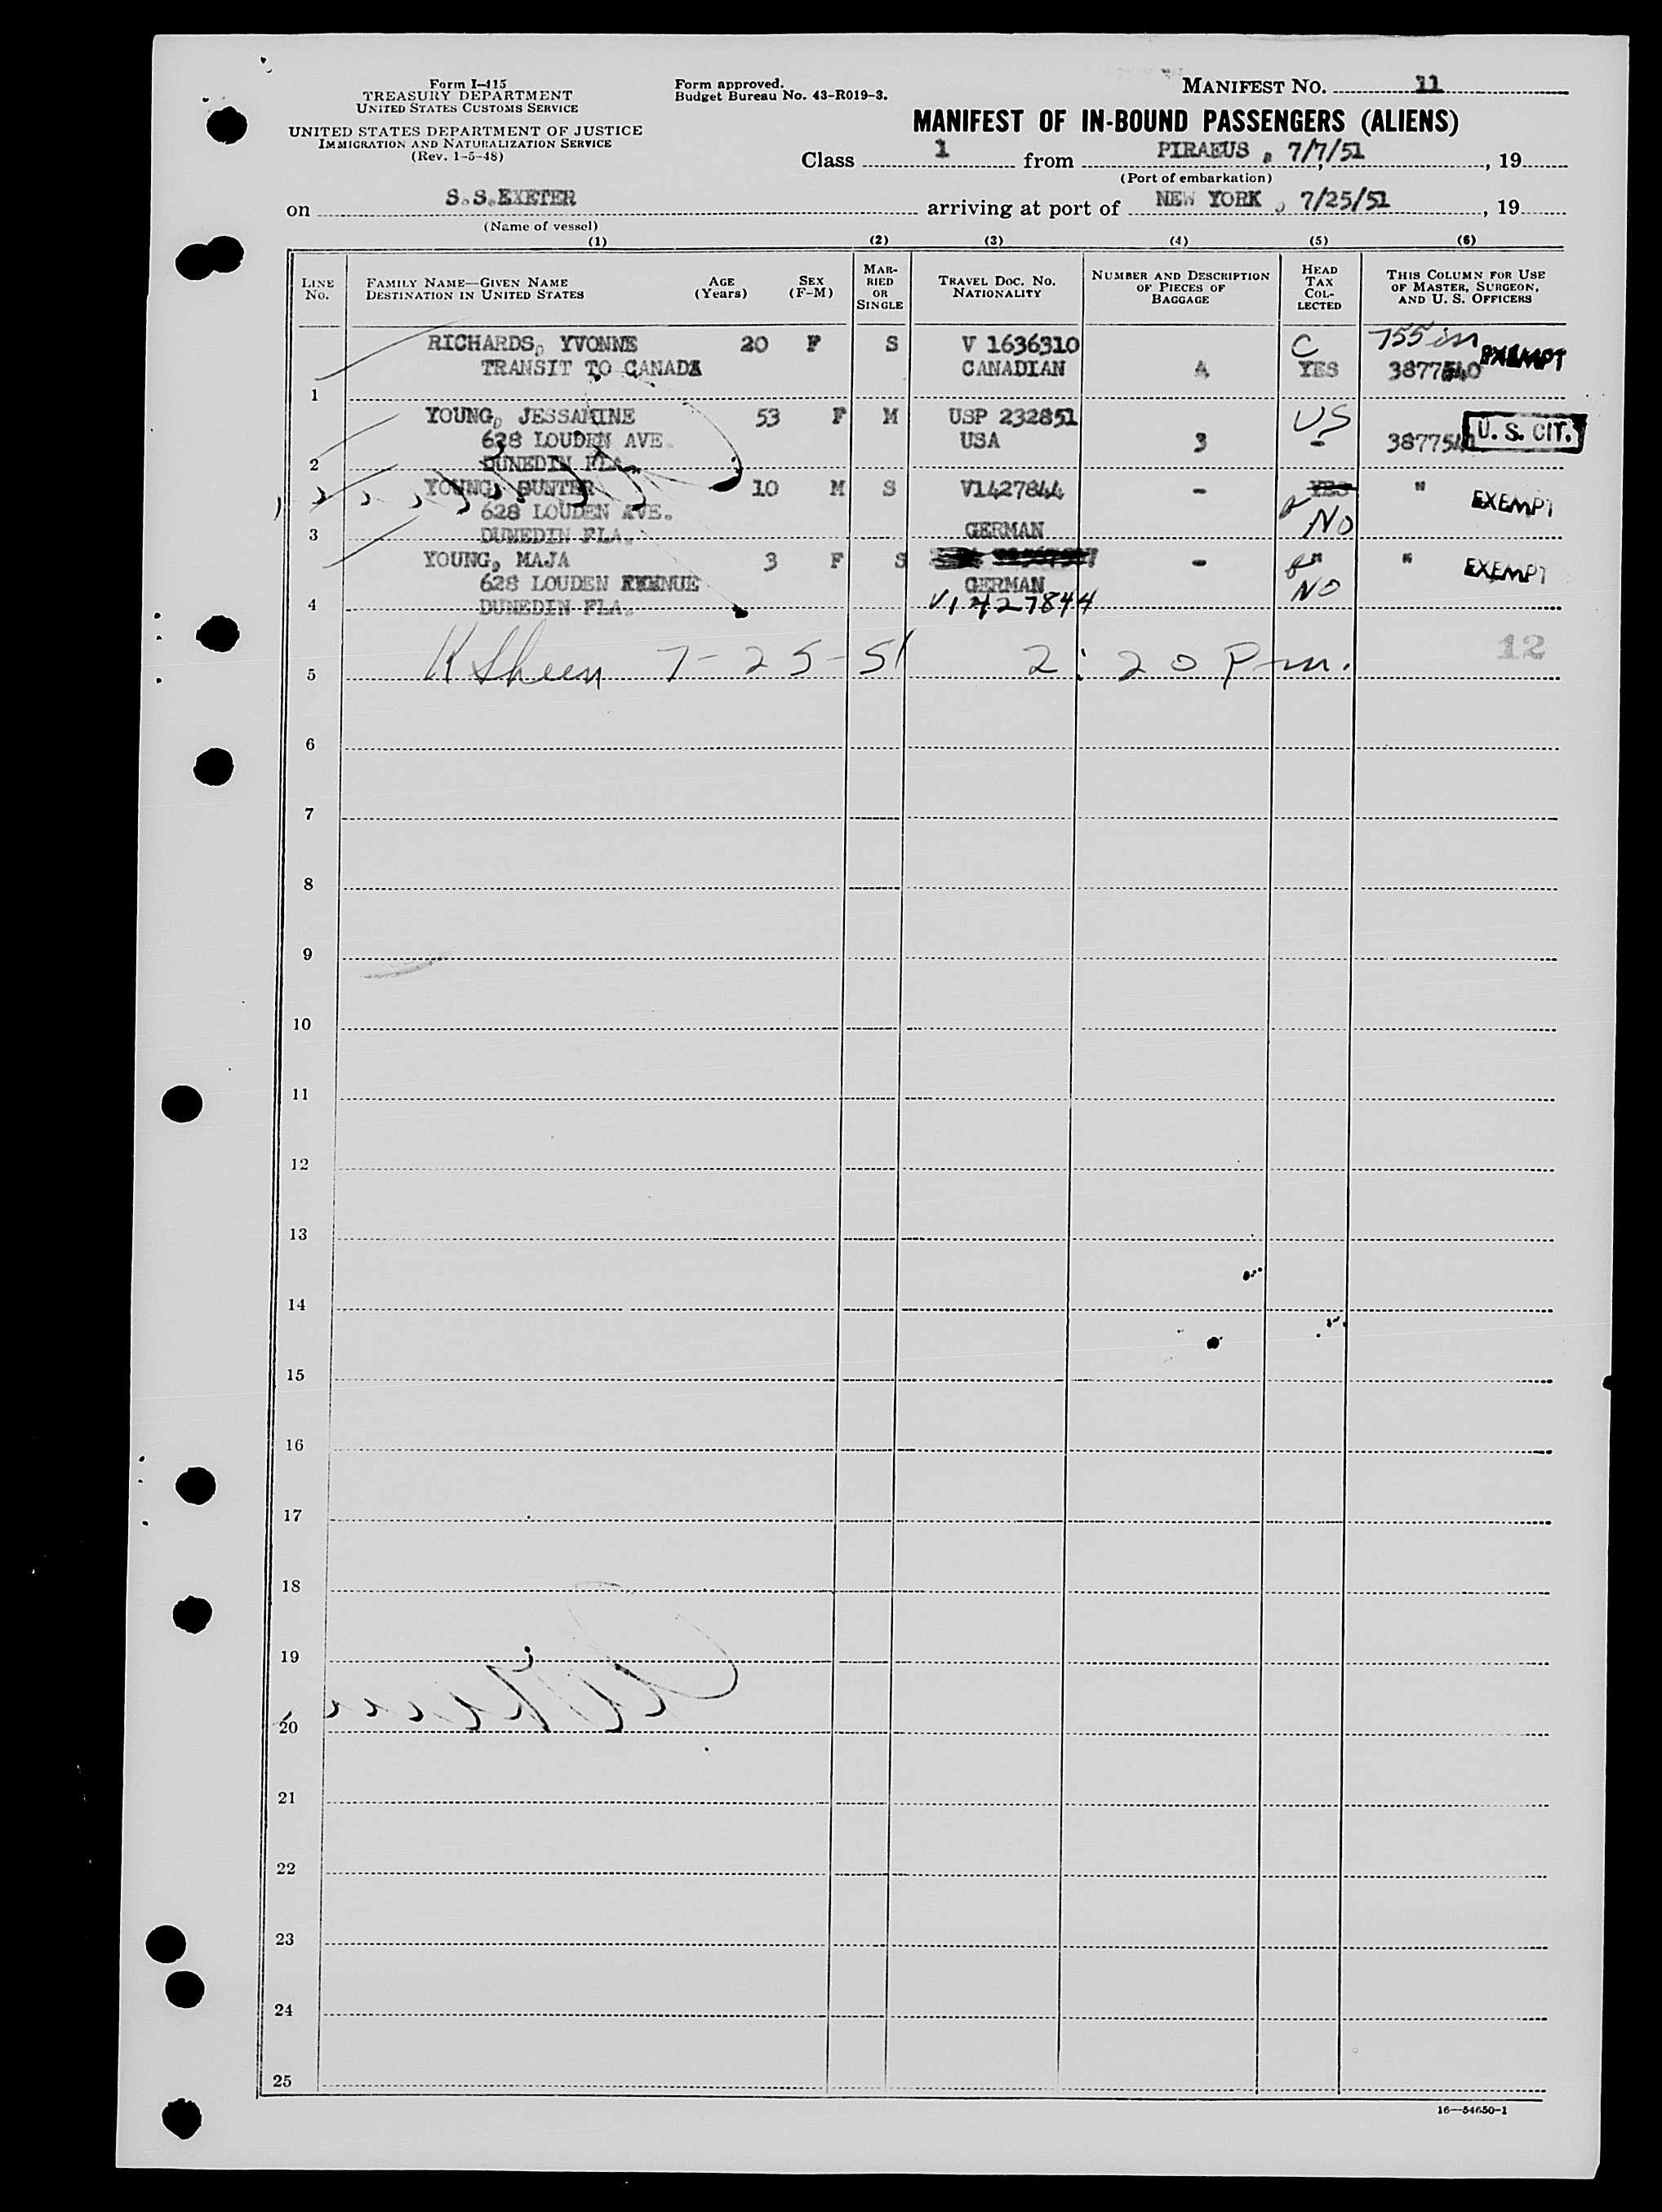 Form I-415
TREASURY DEPARTMENT
UNITED STATES CUSTOMS SERVICE
UNITED STATES DEPARTMENT OF JUSTICE
IMMIGRATION AND NATURALIZATION SERVICE
(Rev. 1-5-48)
Form approved.
Budget Bureau No. 43-R019-3.
MANIFEST NO. 11
MANIFEST OF IN-BOUND PASSENGERS (ALIENS)
Class 1 from PIRAEUS, 7/7/51, 19
(Port of embarkation)
on S.S.EXETER arriving at port of NEW YORK, 7/25/51, 19
(Name of vessel)
(1) (2) (3) (4) (5) (6)
LINE No. FAMILY NAME—GIVEN NAME DESTINATION IN UNITED STATES AGE (Years) SEX (F-M) MARRIED OR SINGLE TRAVEL DOC. NO. NATIONALITY NUMBER AND DESCRIPTION OF PIECES OF BAGGAGE HEAD TAX COLLECTED THIS COLUMN FOR USE OF MASTER, SURGEON, AND U. S. OFFICERS
RICHARDS, YVONNE 20 F S V 1636310 C 755 in EXEMPT
TRANSIT TO CANADA CANADIAN 4 YES
1
YOUNG, JESSAMINE 53 F M USP 232851 US
628 LOUDEN AVE. USA 3 - U. S. CIT.
2 DUNEDIN FLA.
YOUNG, GUNTER 10 M S V1427844 - YES " EXEMPT
628 LOUDEN AVE. NO
3 DUNEDIN FLA. GERMAN
YOUNG, MAJA 3 F S - " " EXEMPT
628 LOUDEN AVENUE GERMAN NO
4 DUNEDIN FLA. V1427844
5 K Sheen 7-25-51 2:20 Pm. 12
6
7
8
9
10
11
12
13
14
15
16
17
18
19
20
21
22
23
24
25
16—54650-1